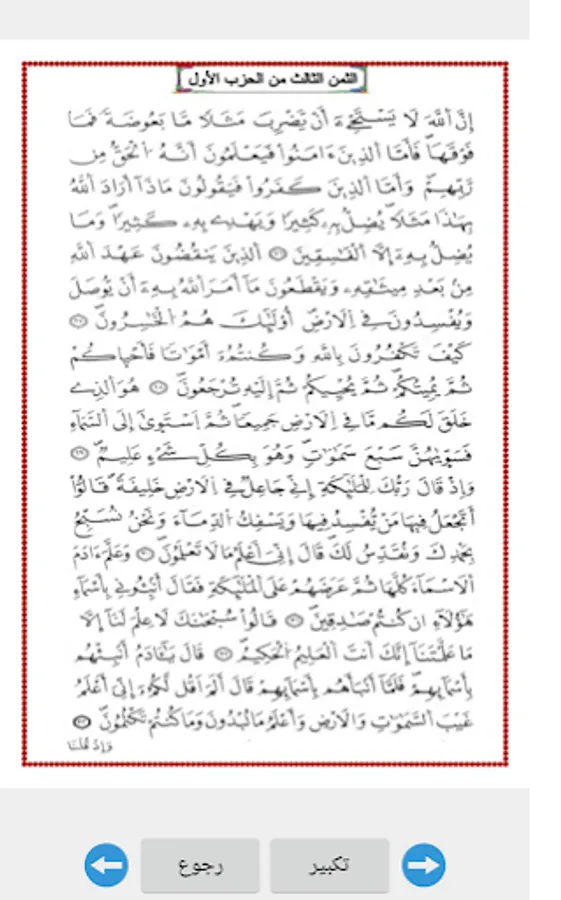 الثمن الثالث من الحزب الأول
إِنَّ اَللَّهَ لَا يَسْتَحْيِۦٓ أَنْ يَّضْرِبَ مَثَلاٗ مَّا بَعُوضَةٗ فَمَا
فَوْقَهَاۖ فَأَمَّا اَلذِينَ ءَامَنُواْ فَيَعْلَمُونَ أَنَّهُ اُ۬لْحَقُّ مِن
رَّبِّهِمْۖ وَأَمَّا اَلذِينَ كَفَرُواْ فَيَقُولُونَ مَاذَآ أَرَادَ اَللَّهُ
بِهَٰذَا مَثَلاٗۖ يُضِلُّ بِهِۦ كَثِيراٗ وَيَهْدِے بِهِۦ كَثِيراٗۖ وَمَا
يُضِلُّ بِهِۦٓ إِلَّا اَلْفَٰسِقِينَ ٢٥ اَلذِينَ يَنقُضُونَ عَهْدَ اَللَّهِ
مِنۢ بَعْدِ مِيثَٰقِهِۦ وَيَقْطَعُونَ مَآ أَمَرَ اَللَّهُ بِهِۦٓ أَنْ يُّوصَلَ
وَيُفْسِدُونَ فِے اِلَارْضِۖ أُوْلَٰٓئِكَ هُمُ اُ۬لْخَٰسِرُونَۖ ٢٦
كَيْفَ تَكْفُرُونَ بِاللَّهِ وَكُنتُمُۥٓ أَمْوَٰتاٗ فَأَحْيَٰكُمْ
ثُمَّ يُمِيتُكُمْ ثُمَّ يُحْيِيكُمْ ثُمَّ إِلَيْهِ تُرْجَعُونَۖ ٢٧ هُوَ اَلذِے
خَلَقَ لَكُم مَّا فِے اِلَارْضِ جَمِيعاٗ ثُمَّ اَسْتَوَىٰٓ إِلَى اَلسَّمَآءِ
فَسَوَّيٰهُنَّ سَبْعَ سَمَٰوَٰتٖۖ وَهُوَ بِكُلِّ شَےْءٍ عَلِيمٞۖ ٢٨
وَإِذْ قَالَ رَبُّكَ لِلْمَلَٰٓئِكَةِ إِنِّے جَاعِلٞ فِے اِلَارْضِ خَلِيفَةٗۖ قَالُوٓاْ
أَتَجْعَلُ فِيهَا مَنْ يُّفْسِدُ فِيهَا وَيَسْفِكُ اُ۬لدِّمَآءَ وَنَحْنُ نُسَبِّحُ
بِحَمْدِكَ وَنُقَدِّسُ لَكَۖ قَالَ إِنِّيَ أَعْلَمُ مَا لَا تَعْلَمُونَۖ ٢٩ وَعَلَّمَ ءَادَمَ
اَلَاسْمَآءَ كُلَّهَا ثُمَّ عَرَضَهُمْ عَلَى اَلْمَلَٰٓئِكَةِ فَقَالَ أَنۢبِـُٔونِے بِأَسْمَآءِ
هَٰٓؤُلَآءِ ان كُنتُمْ صَٰدِقِينَۖ ٣٠ قَالُواْ سُبْحَٰنَكَ لَا عِلْمَ لَنَآ إِلَّا
مَا عَلَّمْتَنَآ إِنَّكَ أَنتَ اَلْعَلِيمُ اُ۬لْحَكِيمُۖ ٣١ قَالَ يَٰٓـَٔادَمُ أَنۢبِئْهُم
بِأَسْمَآئِهِمْۖ فَلَمَّآ أَنۢبَأَهُم بِأَسْمَآئِهِمْ قَالَ أَلَمَ اَقُل لَّكُمُۥٓ إِنِّيَ أَعْلَمُ
غَيْبَ اَلسَّمَٰوَٰتِ وَالَارْضِ وَأَعْلَمُ مَا تُبْدُونَ وَمَا كُنتُمْ تَكْتُمُونَۖ ٣٢
وَإِذْ قُلْنَا
رجوع
تكبير